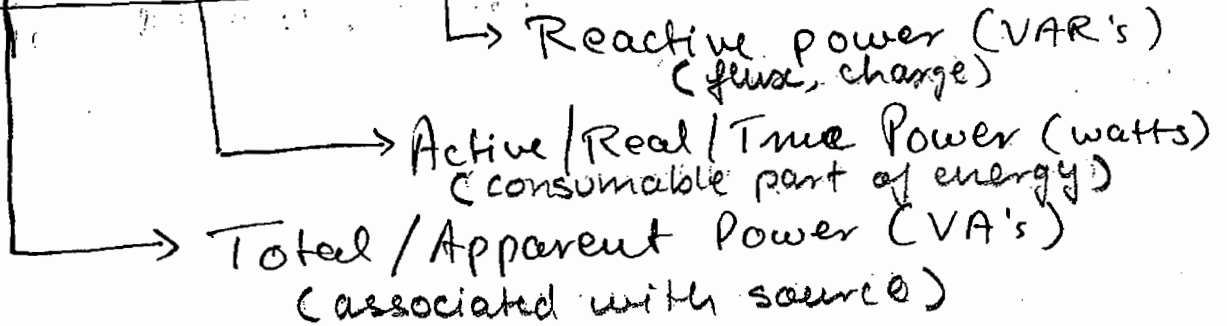 Reactive power (VAR's)
(flux, charge)
Active/Real/True Power (watts)
(consumable part of energy)
Total/Apparent Power (VA's)
(associated with source)